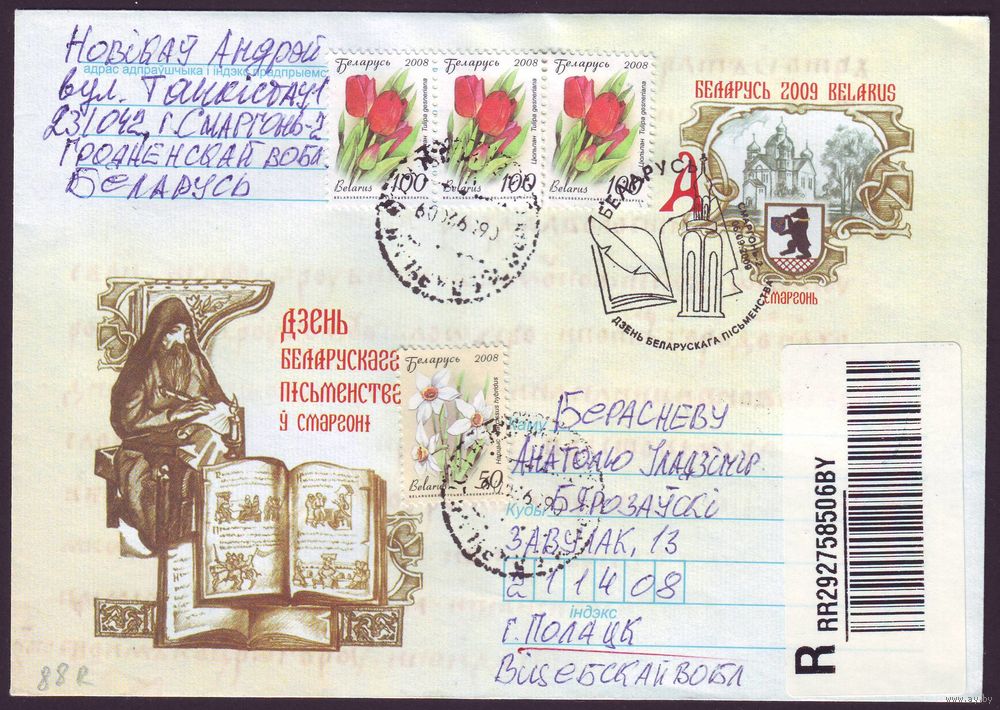 Новікаў Андрэй
адрас адпраўшчыка і індэкс прадпрыемс
вул. Танкістаў 1
231042, г. Смаргонь-2
Гродненскай вобл
Беларусь
Беларусь 2008
Цюльпан Tulipa gesneriana
Belarus 100
Беларусь 2008
Цюльпан Tulipa gesneriana
Belarus 100
Беларусь 2008
Цюльпан Tulipa gesneriana
Belarus 100
БЕЛАРУСЬ 2009 BELARUS
СМАРГОНЬ
БЕЛАРУСЬ
А
СМАРГОНЬ-2
06.09.2009
ДЗЕНЬ БЕЛАРУСКАГА ПІСЬМЕНСТВА
ДЗЕНЬ
БЕЛАРУСКАГА
ПІСЬМЕНСТВА
Ў СМАРГОНІ
Беларусь 2008
Belarus 50
Каму
Бераснёву
Анатолю Уладзімір
Куды
Бярозаўскі
завулак, 13
211408
індэкс
г. Полацк
Віцебскай вобл
R
RR292758506BY
88R
www.ay.by